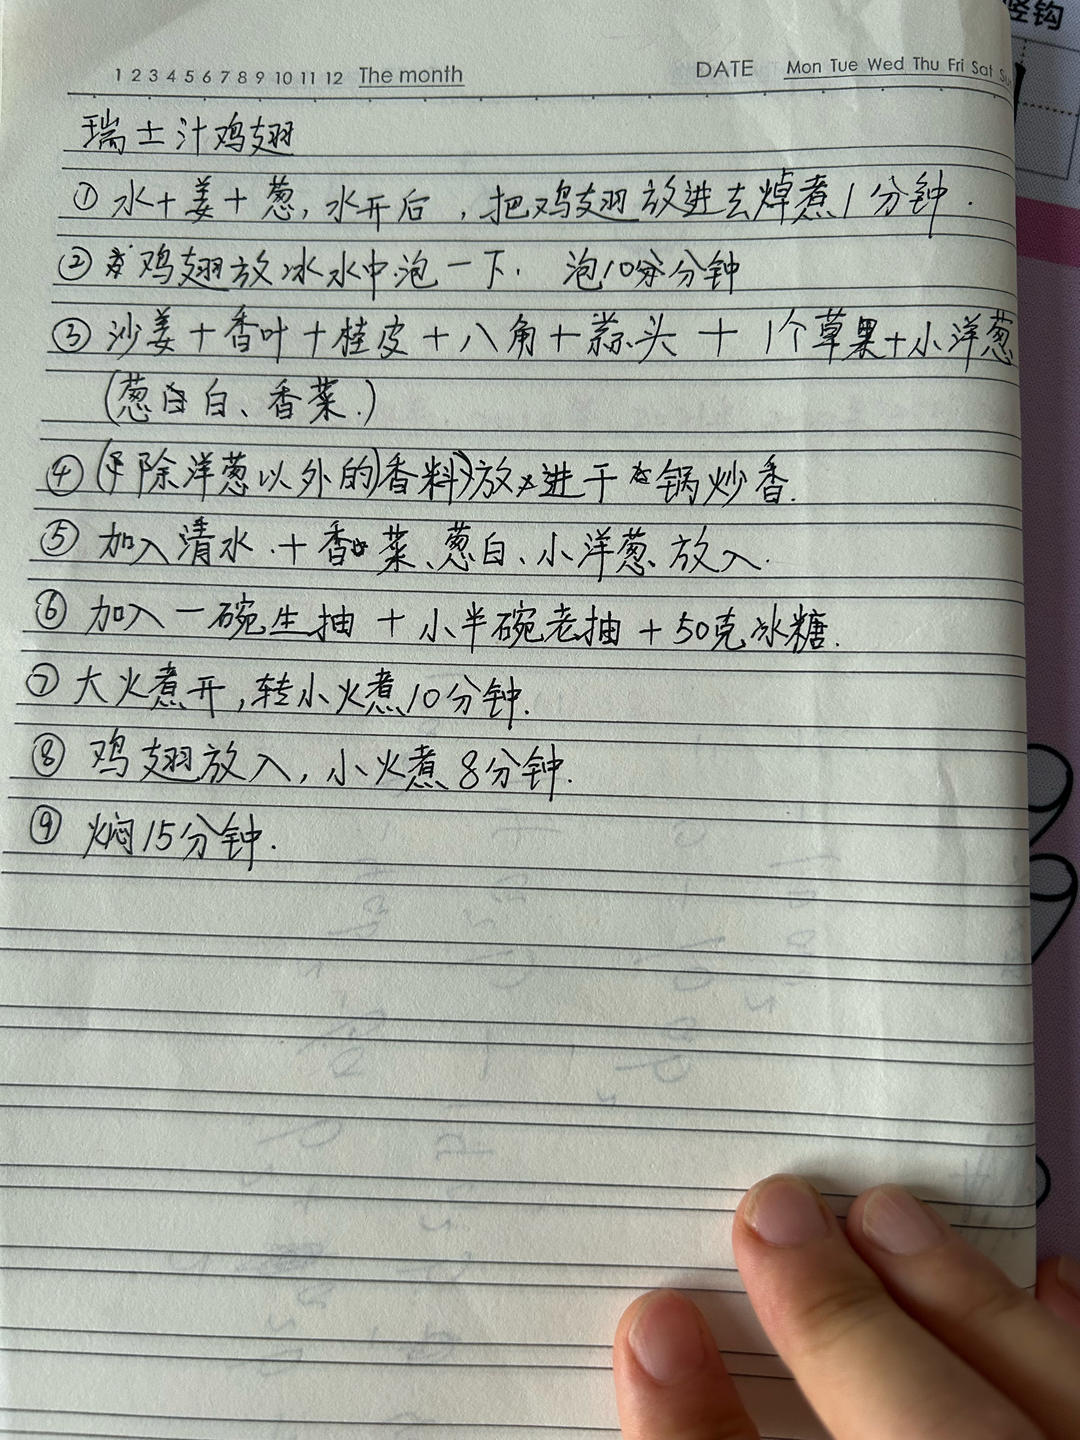 竖钩
1 2 3 4 5 6 7 8 9 10 11 12 The month DATE Mon Tue Wed Thu Fri Sat Su
瑞士汁鸡翅
① 水+姜+葱,水开后,把鸡翅放进去焯煮1分钟.
② 鸡翅放冰水中泡一下. 泡10分钟
③ 沙姜+香叶+桂皮+八角+蒜头+1个草果+小洋葱
(葱白、香菜.)
④ (除洋葱以外的)香料)放进干锅炒香.
⑤ 加入清水.+香菜、葱白、小洋葱放入.
⑥ 加入一碗生抽+小半碗老抽+50克冰糖.
⑦ 大火煮开,转小火煮10分钟.
⑧ 鸡翅放入,小火煮8分钟.
⑨ 焖15分钟.